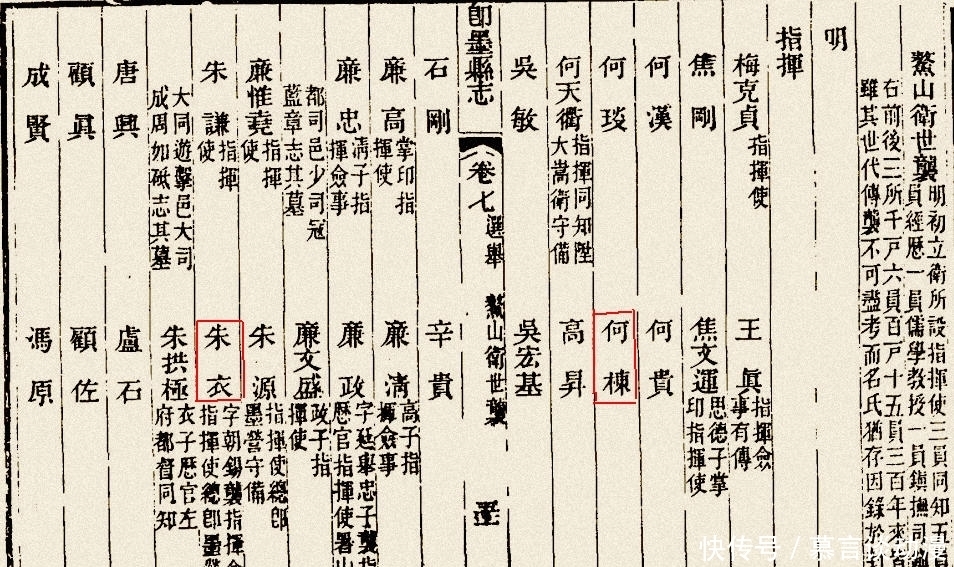 鰲山衛世襲
明初立衛所設指揮使三員同知五
員經歷一員儒學教授一員鎮撫司
右前後三所千戸六員百戸十五員三百年來
雖其世代傳襲不可盡考而名氏猶存因錄於
明
指揮
梅克貞指揮使
王眞指揮僉事有傳
焦剛
焦文運思德子掌印指揮使
何漢
何貴
何琰
何棟
何天衢指揮同知陞大嵩衛守備
高昇
吳敏
吳宏基
即墨縣志
卷七
選舉
鰲山衛世襲
石剛
辛貴
廉高掌印指揮使
廉清高子指揮僉事
廉忠清子指揮僉事
廉政字廷舉忠子襲指歷官指揮使署山
都司邑少司冠藍章志其墓
廉文盛政子指揮使
廉惟堯指揮使
朱源指揮使總即墨營守備
朱謙指揮使
朱衣字朝錫襲指揮僉指揮使總即墨營
大同遊擊邑大司成周如砥志其墓
朱拱極衣子歷官左府都督同知
唐興
盧石
顧眞
顧佐
成賢
馮原
快传号 / 慕言